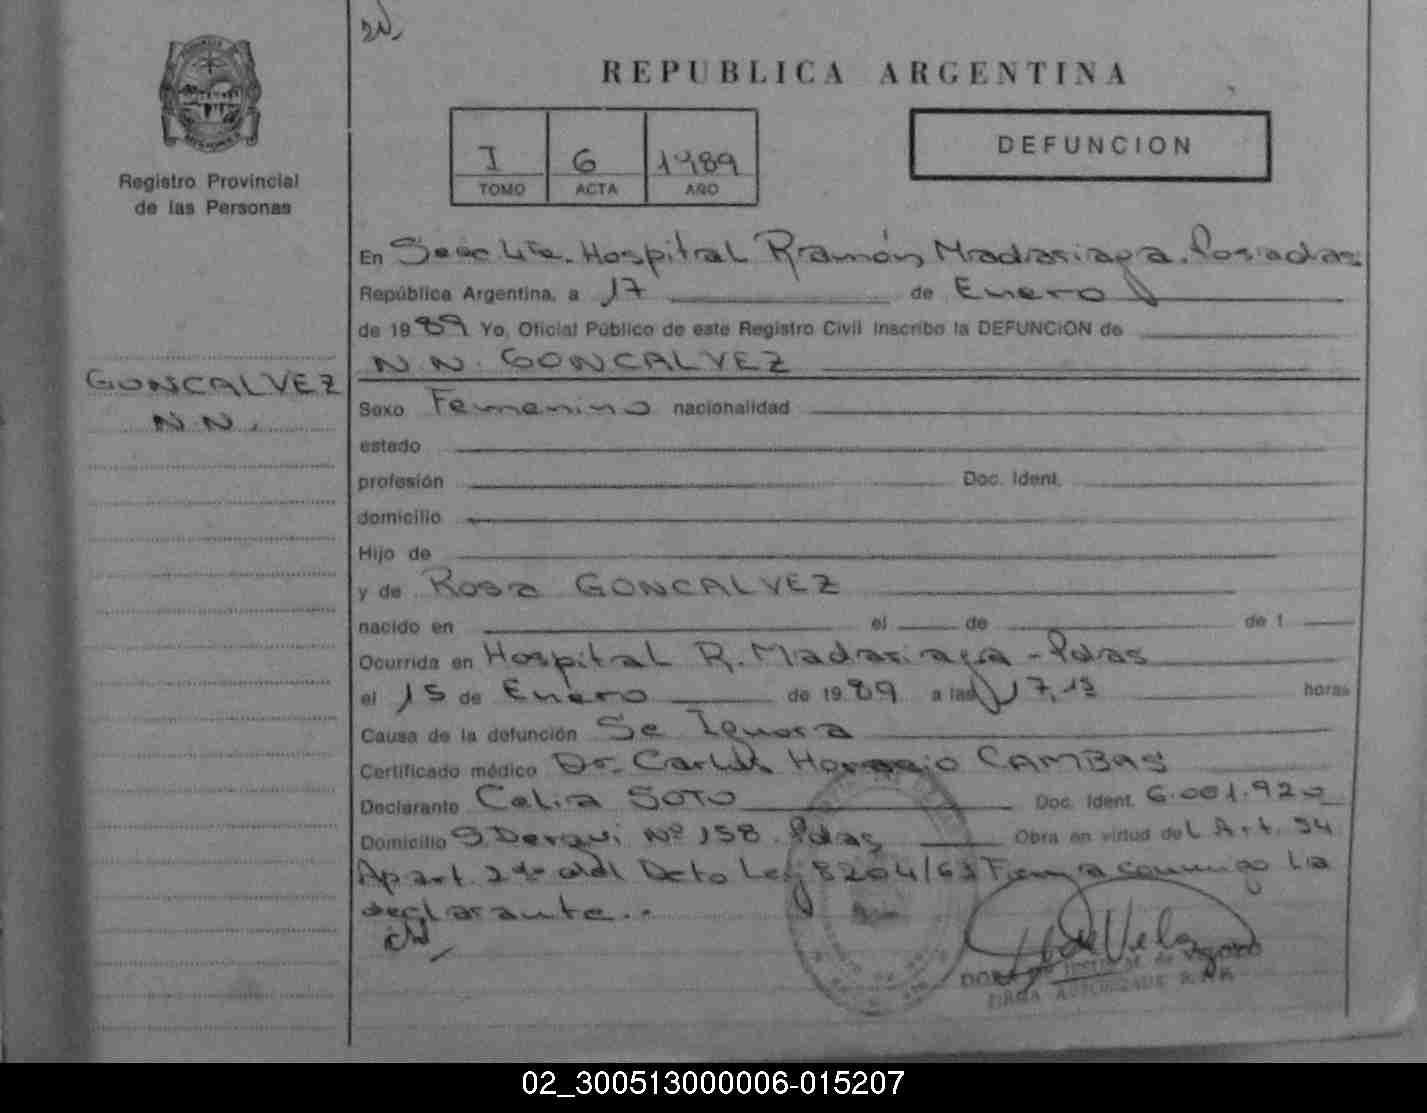 REPUBLICA ARGENTINA
I 6 1989
TOMO ACTA AÑO
DEFUNCION
Registro Provincial
de las Personas
En Secc 4ta. Hospital Ramón Madariaga. Posadas
República Argentina, a 17 de Enero
de 1989 Yo, Oficial Público de este Registro Civil inscribo la DEFUNCION de
N.N. GONCALVEZ
GONCALVEZ
N.N.
Sexo Femenino nacionalidad
estado
profesión Doc. Ident.
domicilio
Hijo de
y de Rosa GONCALVEZ
nacido en el de de 1
Ocurrida en Hospital R. Madariaga - Pdas
el 15 de Enero de 1989 a las 17,13 horas
Causa de la defunción Se Ignora
Certificado médico Dr. Carlos Horacio CAMBAS
Declarante Celia SOTO Doc. Ident. 6.001.920
Domicilio S. Derqui Nº 158. Pdas Obra en virtud del Art. 54
Apart. 2do del Dcto Ley 8204/63 Firma conmigo la
declarante..
FIRMA AUTORIZADA
02_300513000006-015207